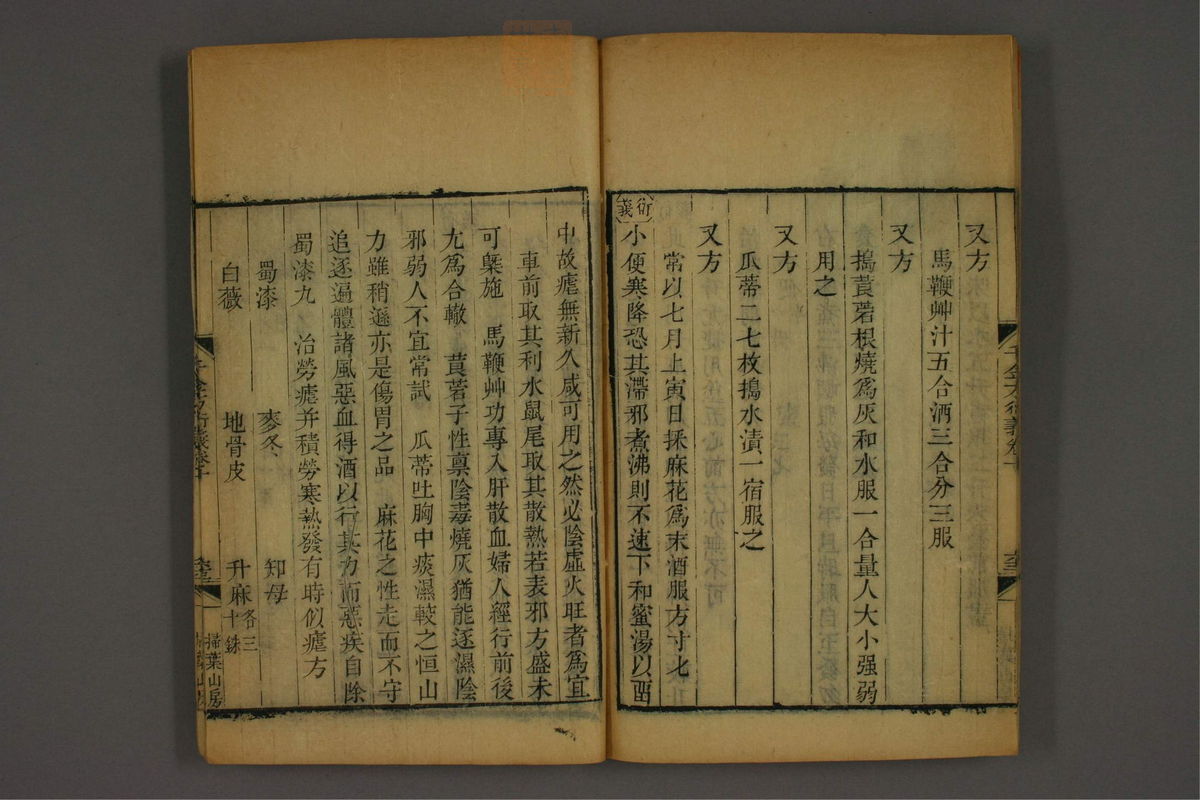 又方
馬鞭艸汁五合酒三合分三服
又方
搗莨菪根燒爲灰和水服一合量人大小强弱
用之
又方
瓜蒂二七枚搗水漬一宿服之
又方
常以七月上寅日採麻花爲末酒服方寸匕
衍義
小便寒降恐其滯邪煮沸則不速下和蜜湯以畱
中故瘧無新久咸可用之然必陰虛火旺者爲宜
車前取其利水鼠尾取其散熱若表邪方盛未
可槩施 馬鞭艸功專入肝散血婦人經行前後
尢爲合轍 莨菪子性禀陰毒燒灰猶能逐濕陰
邪弱人不宜常試 瓜蒂吐胸中痰濕較之恒山
力雖稍遜亦是傷胃之品 麻花之性走而不守
追逐遍體諸風惡血得酒以行其力而惡疾自除
蜀漆九 治勞瘧并積勞寒熱發有時似瘧方
蜀漆 麥冬 知母
白薇 地骨皮 升麻各三十銖
千金方衍義卷十
掃葉山房